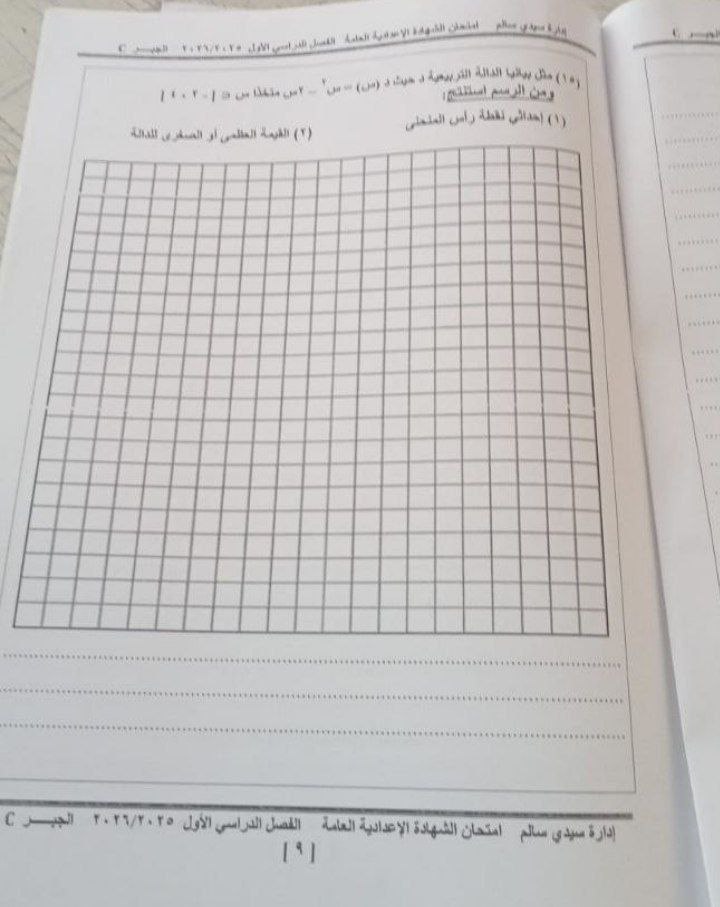 إدارة سيدي سالم امتحان الشهادة الإعدادية العامة الفصل الدراسي الأول ٢٠٢٦/٢٠٢٥ الجبــر C
(١٥) مثل بيانيا الدالة التربيعية د حيث د (س) = س٢ – ٢س متخذا س ∈ [ -٢ ، ٤ ]
ومن الرسم استنتج:
(١) إحداثي نقطة رأس المنحنى (٢) القيمة العظمى أو الصغرى للدالة
إدارة سيدي سالم امتحان الشهادة الإعدادية العامة الفصل الدراسي الأول ٢٠٢٦/٢٠٢٥ الجبــر C
[ ٩ ]